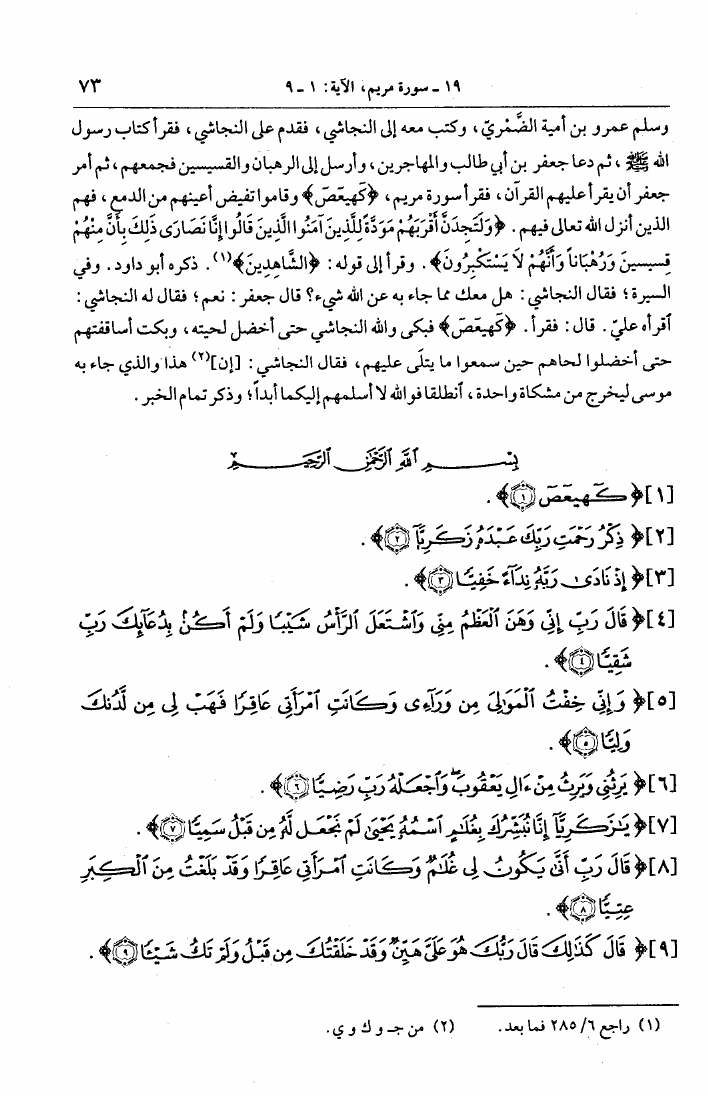 ١٩ - سورة مريم، الآية: ١ - ٩ ٧٣
وسلم عمرو بن أمية الضَّمْريّ، وكتب معه إلى النجاشي، فقدم على النجاشي، فقرأ كتاب رسول
الله ﷺ، ثم دعا جعفر بن أبي طالب والمهاجرين، وأرسل إلى الرهبان والقسيسين فجمعهم، ثم أمر
جعفر أن يقرأ عليهم القرآن، فقرأ سورة مريم، ﴿كَهيعَصَ﴾ وقاموا تفيض أعينهم من الدمع، فهم
الذين أنزل الله تعالى فيهم. ﴿وَلَتَجِدَنَّ أَقْرَبَهُمْ مَوَدَّةً لِلَّذِينَ آمَنُوا الَّذِينَ قَالُوا إِنَّا نَصَارَى ذَلِكَ بِأَنَّ مِنْهُمْ
قِسِيسينَ وَرُهْبَاناً وَأَنَّهُمْ لاَ يَسْتَكْبِرُونَ﴾. وقرأ إلى قوله: ﴿الشَّاهِدِينَ﴾(١). ذكره أبو داود. وفي
السيرة؛ فقال النجاشي: هل معك مما جاء به عن الله شيء؟ قال جعفر: نعم؛ فقال له النجاشي:
ٱقرأه عليّ. قال: فقرأ. ﴿كَهيعَصَ﴾ فبكى والله النجاشي حتى أخضل لحيته، وبكت أساقفتهم
حتى أخضلوا لحاهم حين سمعوا ما يتلَى عليهم، فقال النجاشي: [إن](٢) هذا والذي جاء به
موسى ليخرج من مشكاة واحدة، ٱنطلقا فوالله لا أسلمهم إليكما أبداً؛ وذكر تمام الخبر.
بِسْمِ ٱللَّهِ ٱلرَّحْمَٰنِ ٱلرَّحِيمِ
[١] ﴿كٓهيعٓصٓ ١﴾.
[٢] ﴿ذِكْرُ رَحْمَتِ رَبِّكَ عَبْدَهُۥ زَكَرِيَّآ ٢﴾.
[٣] ﴿إِذْ نَادَىٰ رَبَّهُۥ نِدَآءً خَفِيًّا ٣﴾.
[٤] ﴿قَالَ رَبِّ إِنِّى وَهَنَ ٱلْعَظْمُ مِنِّى وَٱشْتَعَلَ ٱلرَّأْسُ شَيْبًا وَلَمْ أَكُنۢ بِدُعَآئِكَ رَبِّ
شَقِيًّا ٤﴾.
[٥] ﴿وَإِنِّى خِفْتُ ٱلْمَوَٰلِىَ مِن وَرَآءِى وَكَانَتِ ٱمْرَأَتِى عَاقِرًا فَهَبْ لِى مِن لَّدُنكَ
وَلِيًّا ٥﴾.
[٦] ﴿يَرِثُنِى وَيَرِثُ مِنْ ءَالِ يَعْقُوبَ ۖ وَٱجْعَلْهُ رَبِّ رَضِيًّا ٦﴾.
[٧] ﴿يَٰزَكَرِيَّآ إِنَّا نُبَشِّرُكَ بِغُلَٰمٍ ٱسْمُهُۥ يَحْيَىٰ لَمْ نَجْعَل لَّهُۥ مِن قَبْلُ سَمِيًّا ٧﴾.
[٨] ﴿قَالَ رَبِّ أَنَّىٰ يَكُونُ لِى غُلَٰمٌ وَكَانَتِ ٱمْرَأَتِى عَاقِرًا وَقَدْ بَلَغْتُ مِنَ ٱلْكِبَرِ
عِتِيًّا ٨﴾.
[٩] ﴿قَالَ كَذَٰلِكَ قَالَ رَبُّكَ هُوَ عَلَىَّ هَيِّنٌ وَقَدْ خَلَقْتُكَ مِن قَبْلُ وَلَمْ تَكُ شَيْـًٔا ٩﴾.
(١) راجع ٦/ ٢٨٥ فما بعد. (٢) من جـ و ك و ي.